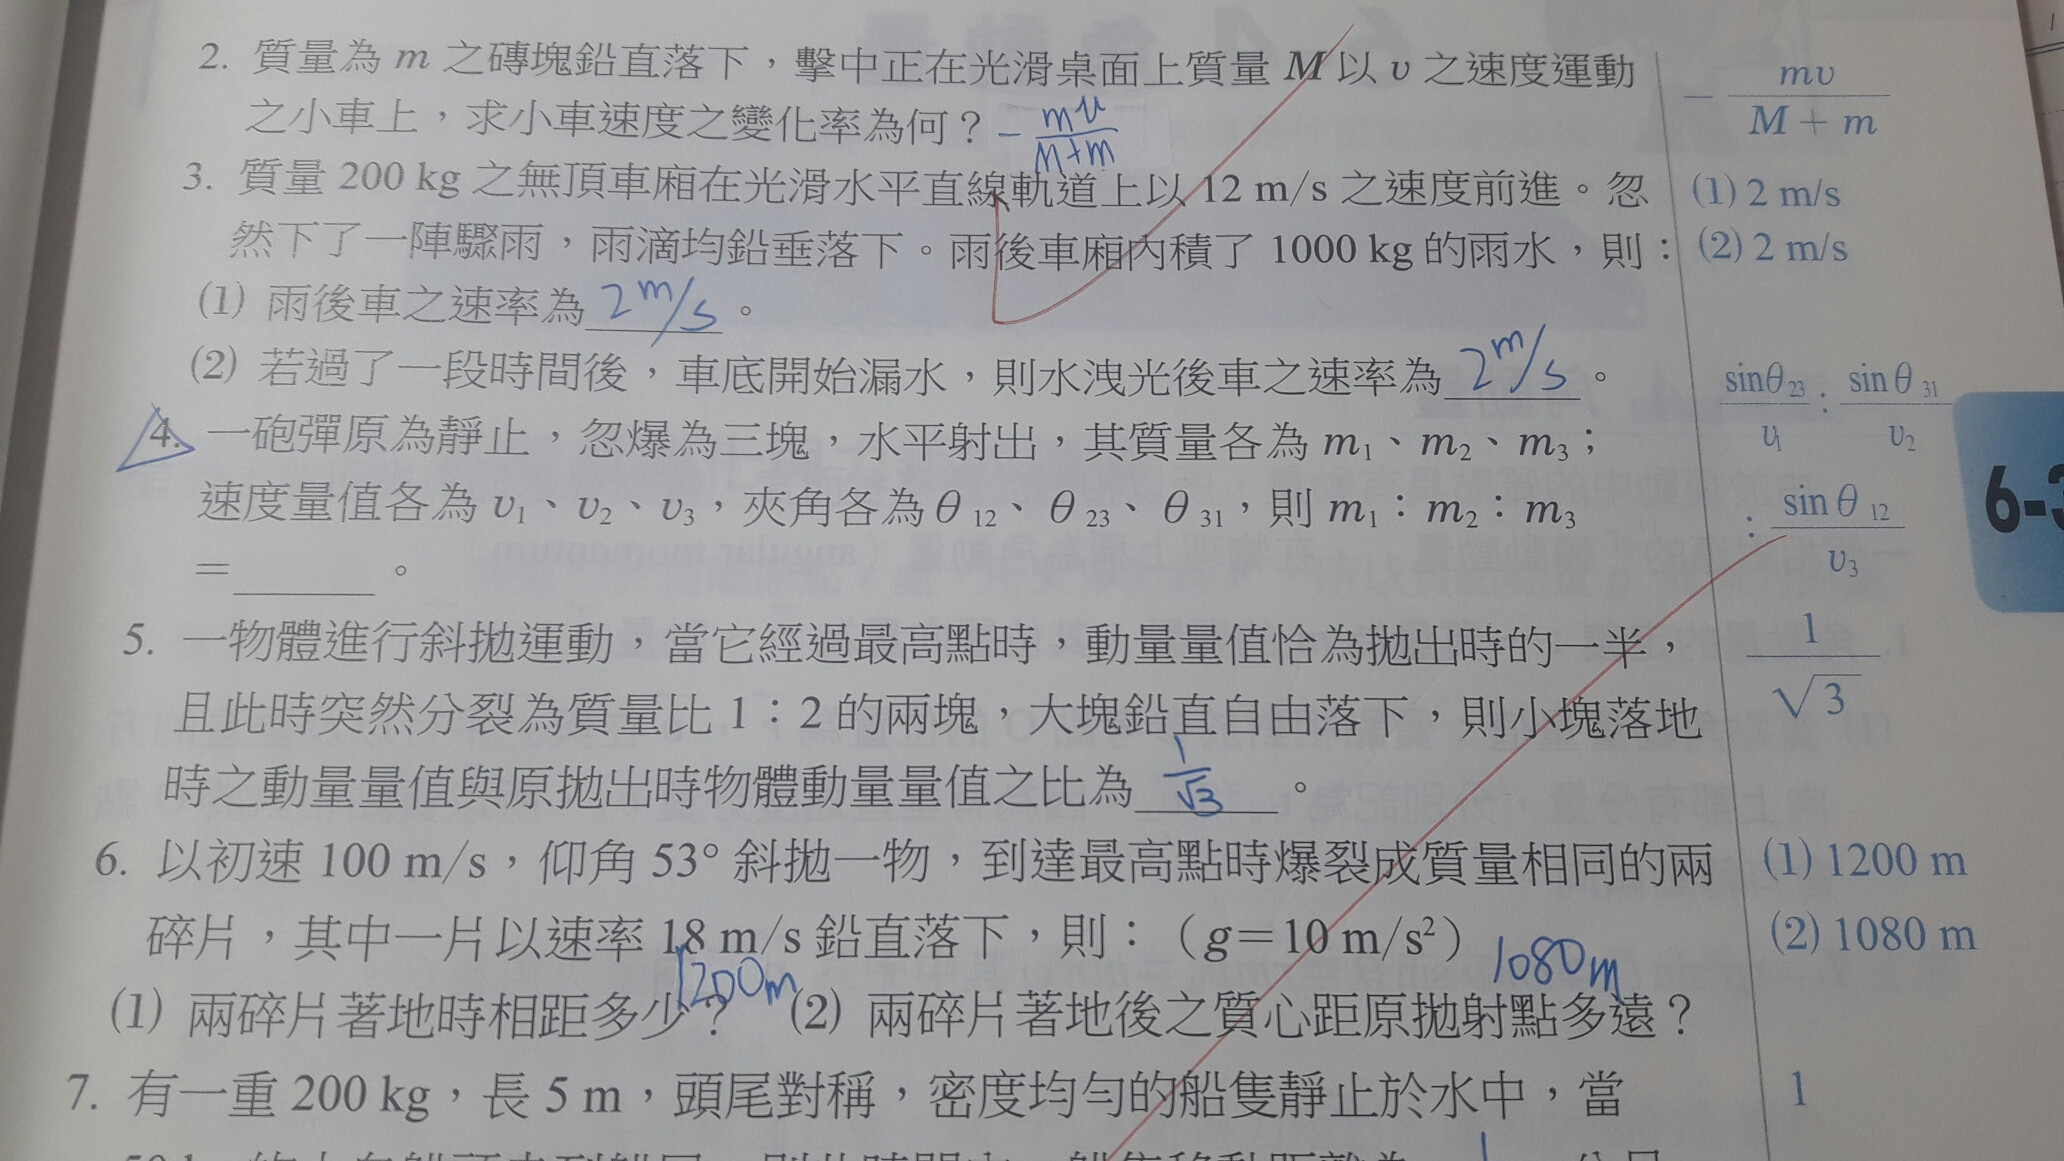 2. 質量為 m 之磚塊鉛直落下，擊中正在光滑桌面上質量 M 以 υ 之速度運動
之小車上，求小車速度之變化率為何？ - mυ / M+m
- mυ / M + m
3. 質量 200 kg 之無頂車廂在光滑水平直線軌道上以 12 m/s 之速度前進。忽
然下了一陣驟雨，雨滴均鉛垂落下。雨後車廂內積了 1000 kg 的雨水，則：
(1) 雨後車之速率為 2 m/s 。
(2) 若過了一段時間後，車底開始漏水，則水洩光後車之速率為 2 m/s 。
(1) 2 m/s
(2) 2 m/s
4. 一砲彈原為靜止，忽爆為三塊，水平射出，其質量各為 m₁、m₂、m₃；
速度量值各為 υ₁、υ₂、υ₃，夾角各為 θ ₁₂、θ ₂₃、θ ₃₁，則 m₁：m₂：m₃
= ______ 。
sinθ ₂₃ / υ₁ : sin θ ₃₁ / υ₂
: sin θ ₁₂ / υ₃
6-3
5. 一物體進行斜拋運動，當它經過最高點時，動量量值恰為拋出時的一半，
且此時突然分裂為質量比 1：2 的兩塊，大塊鉛直自由落下，則小塊落地
時之動量量值與原拋出時物體動量量值之比為 1/√3 。
1 / √3
6. 以初速 100 m/s，仰角 53° 斜拋一物，到達最高點時爆裂成質量相同的兩
碎片，其中一片以速率 18 m/s 鉛直落下，則：（g＝10 m/s²）
1200m 1080m
(1) 兩碎片著地時相距多少？ (2) 兩碎片著地後之質心距原拋射點多遠？
(1) 1200 m
(2) 1080 m
7. 有一重 200 kg，長 5 m，頭尾對稱，密度均勻的船隻靜止於水中，當
1